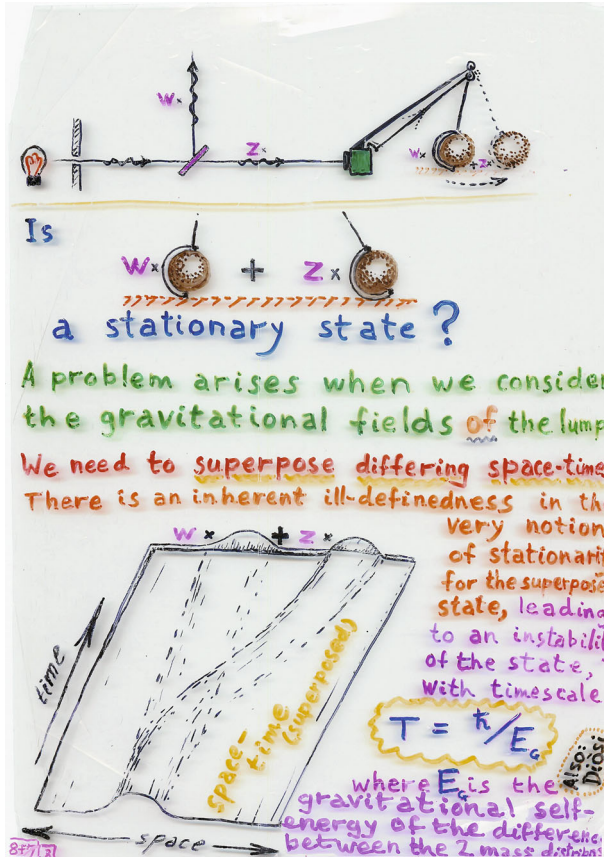 w×
z×
w× + z×
Is
w× + z×
a stationary state?
A problem arises when we consider
the gravitational fields of the lump
We need to superpose differing space-time
There is an inherent ill-definedness in th
very notion
of stationari
for the superpose
state, leading
to an instabili
of the state,
with timescale
T = ħ/E_G
Also:
Diósi
where E_G is the
gravitational self-
energy of the differenc
between the 2 mass distribu
w× + z×
time
space-
time
(superposed)
space